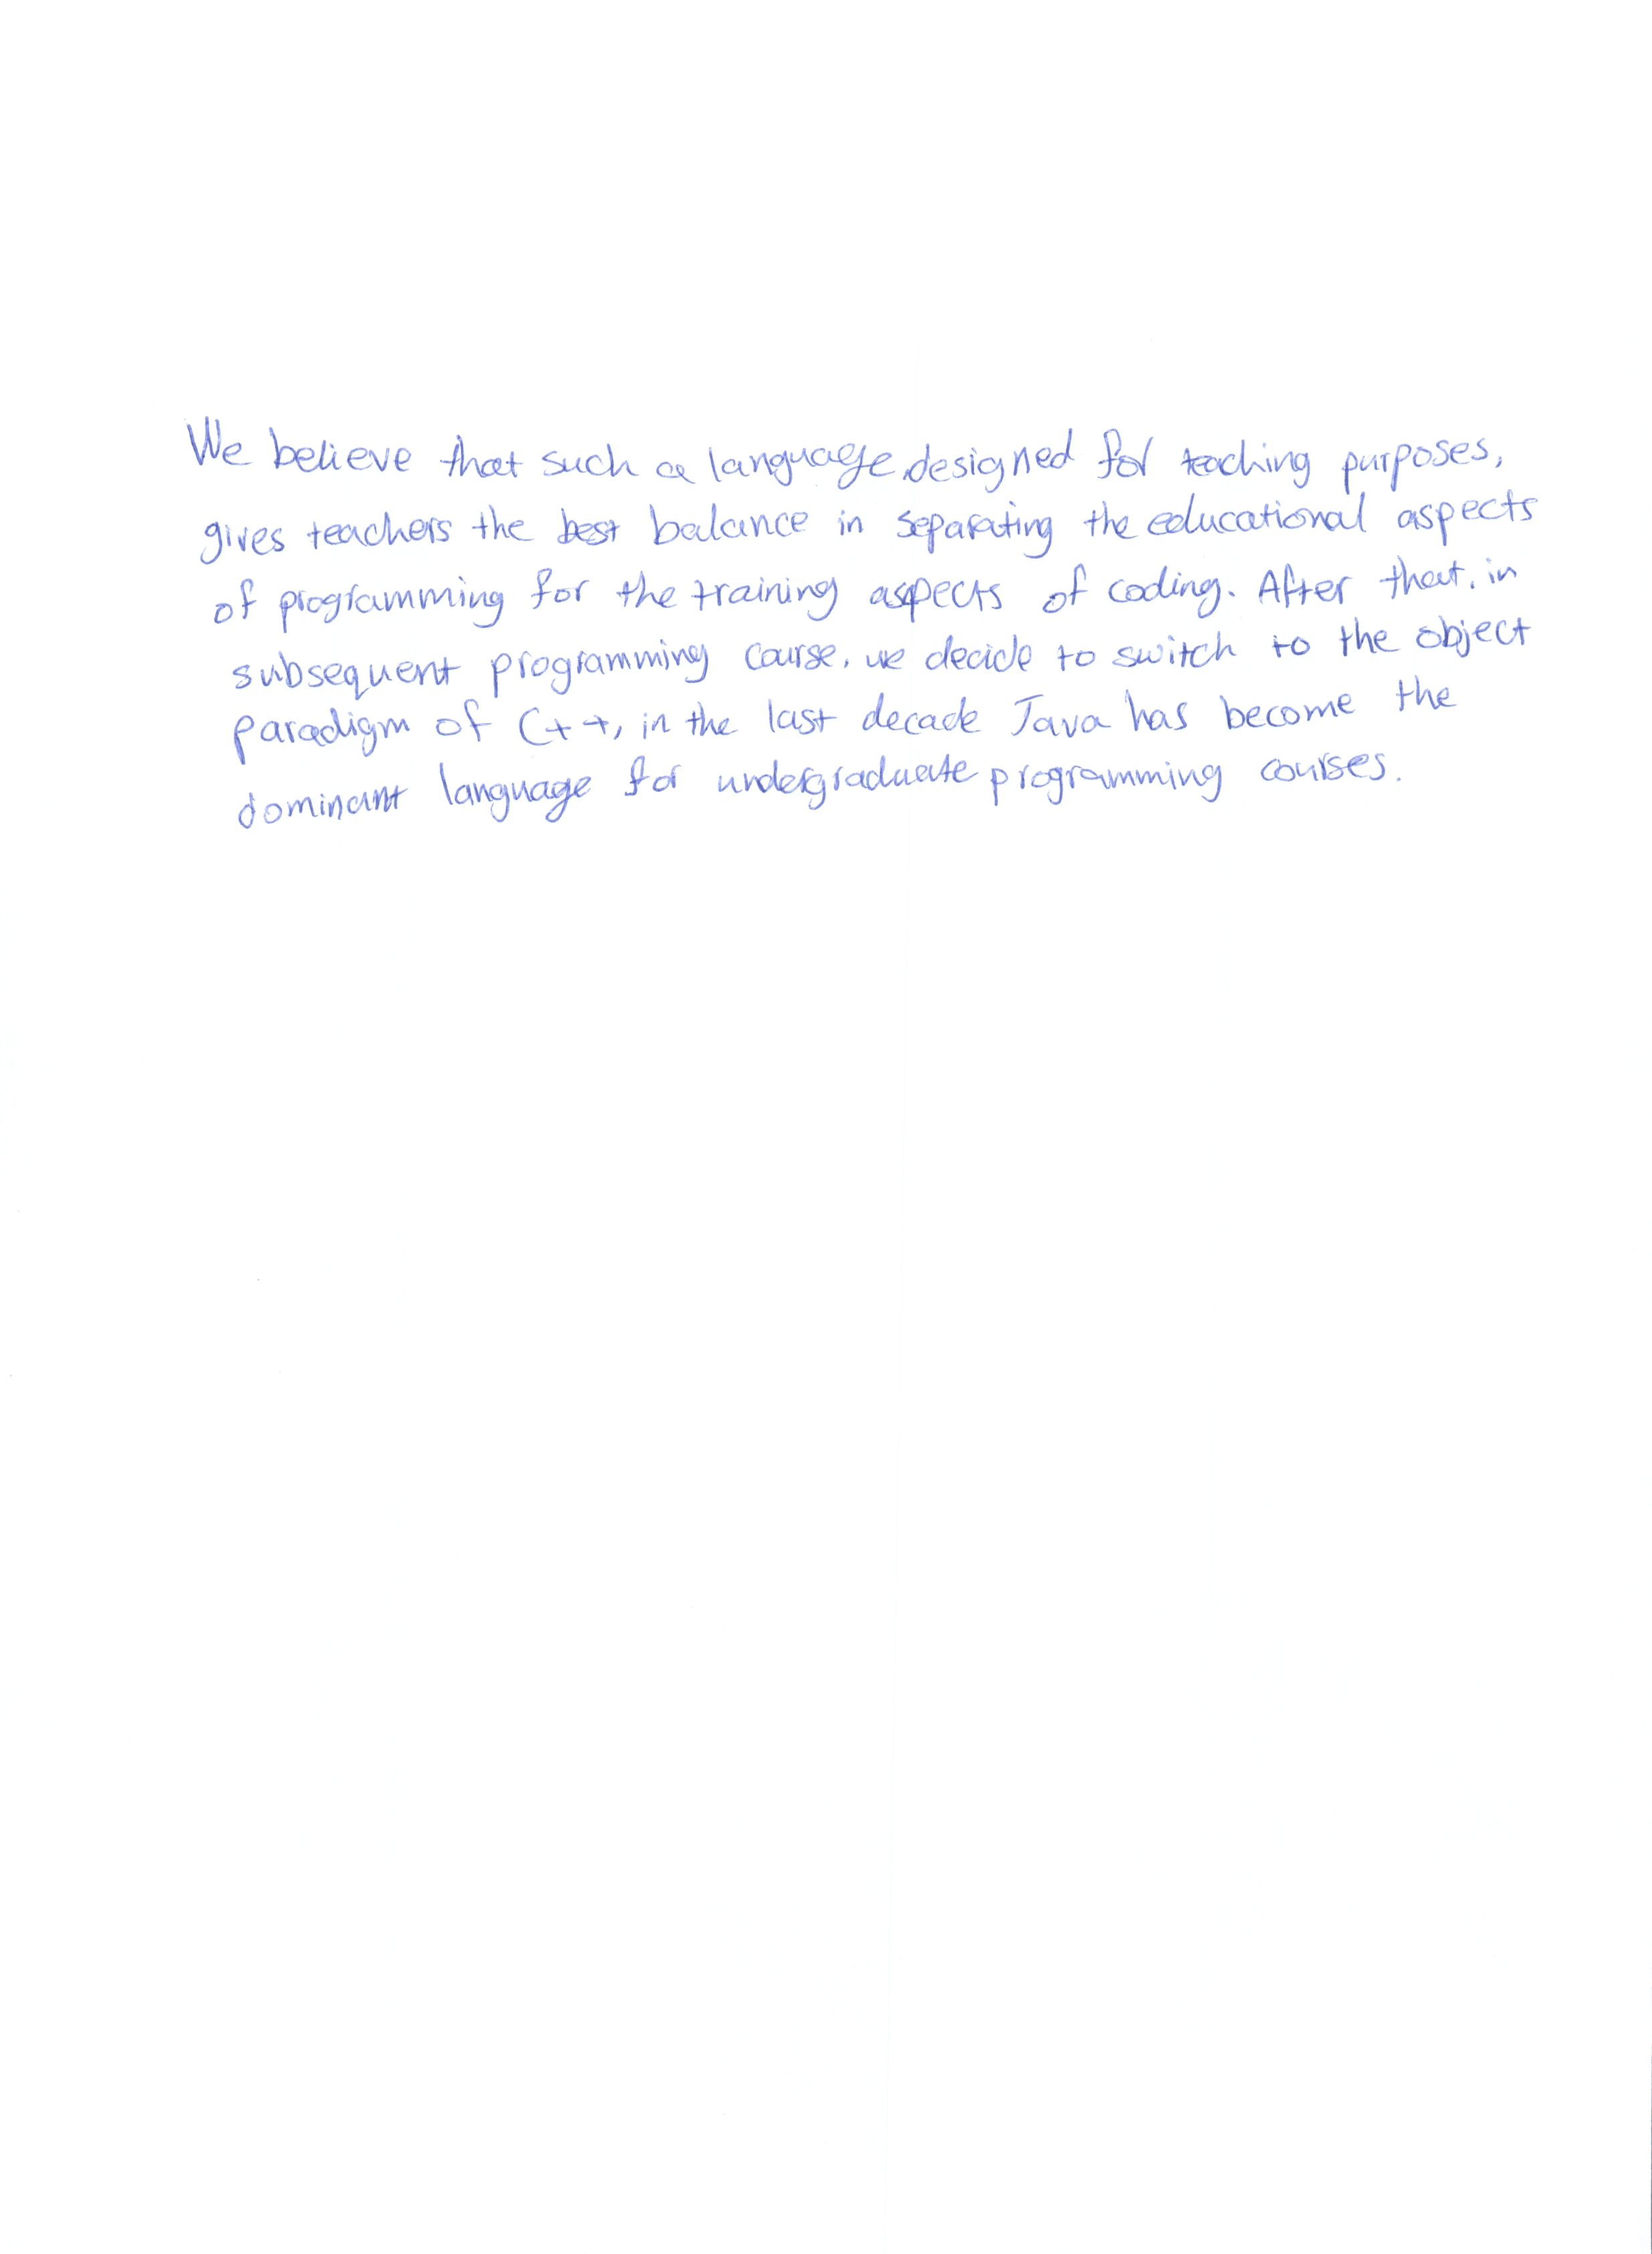 We believe that such a language, designed for teaching purposes,
gives teachers the best balance in separating the educational aspects
of programming for the training aspects of coding. After that, in
subsequent programming course, we decide to switch to the object
paradigm of C++, in the last decade Java has become the
dominant language for undergraduate programming courses.